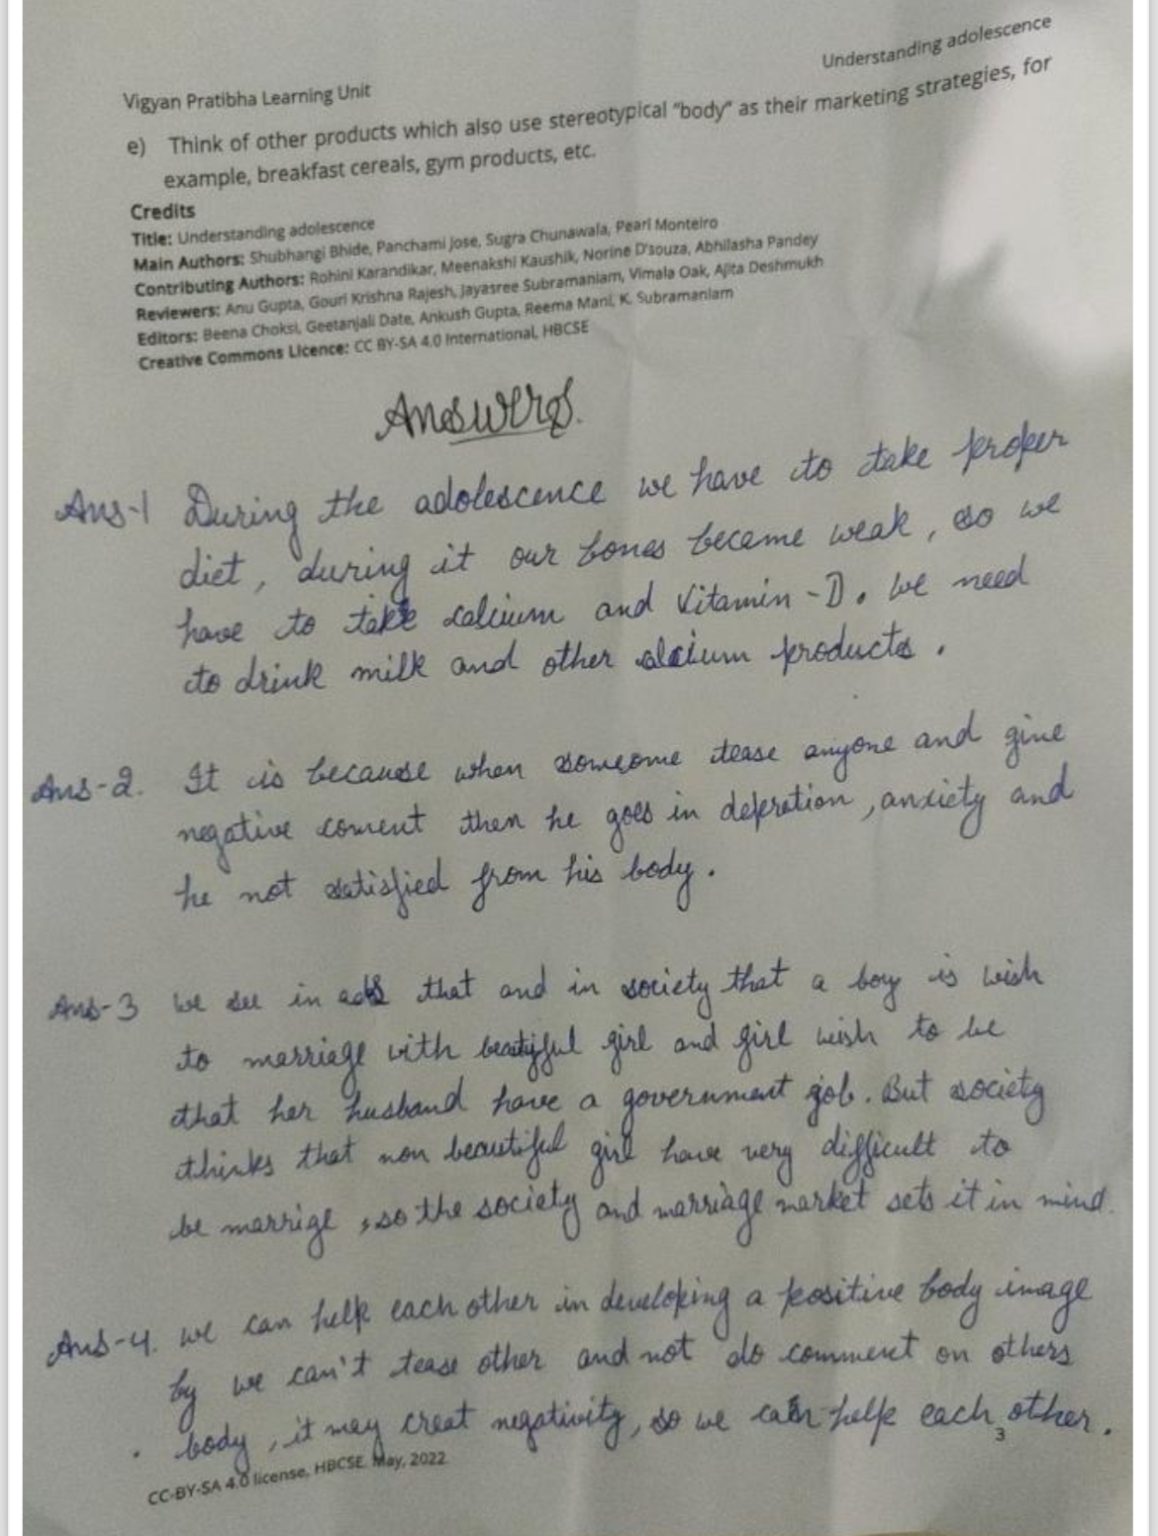 Understanding adolescence
Vigyan Pratibha Learning Unit
e) Think of other products which also use stereotypical "body" as their marketing strategies, for
example, breakfast cereals, gym products, etc.
Credits
Title: Understanding adolescence
Main Authors: Shubhangi Bhide, Panchami Jose, Sugra Chunawala, Pearl Monteiro
Contributing Authors: Rohini Karandikar, Meenakshi Kaushik, Norine D'souza, Abhilasha Pandey
Reviewers: Anu Gupta, Gouri Krishna Rajesh, Jayasree Subramaniam, Vimala Oak, Ajita Deshmukh
Editors: Beena Choksi, Geetanjali Date, Ankush Gupta, Reema Mani, K. Subramaniam
Creative Commons Licence: CC BY-SA 4.0 International, HBCSE
Answers.
Ans-1 During the adolescence we have to take proper
diet, during it our bones became weak, so we
have to take calcium and Vitamin-D. We need
to drink milk and other alcium products.
Ans-2. It is because when someome tease anyone and give
negative coment then he goes in depration, anxiety and
he not satisfied from his body.
Ans-3 We see in ads that and in society that a boy is wish
to marriage with beautiful girl and girl wish to be
that her husband have a government job. But society
thinks that non beautiful girl have very difficult to
be marrige, so the society and marriage market sets it in mind.
Ans-4. We can help each other in developing a positive body image
by we can't tease other and not do comment on others
body, it may creat negativity, so we can help each other.
3
CC-BY-SA 4.0 license, HBCSE. May, 2022